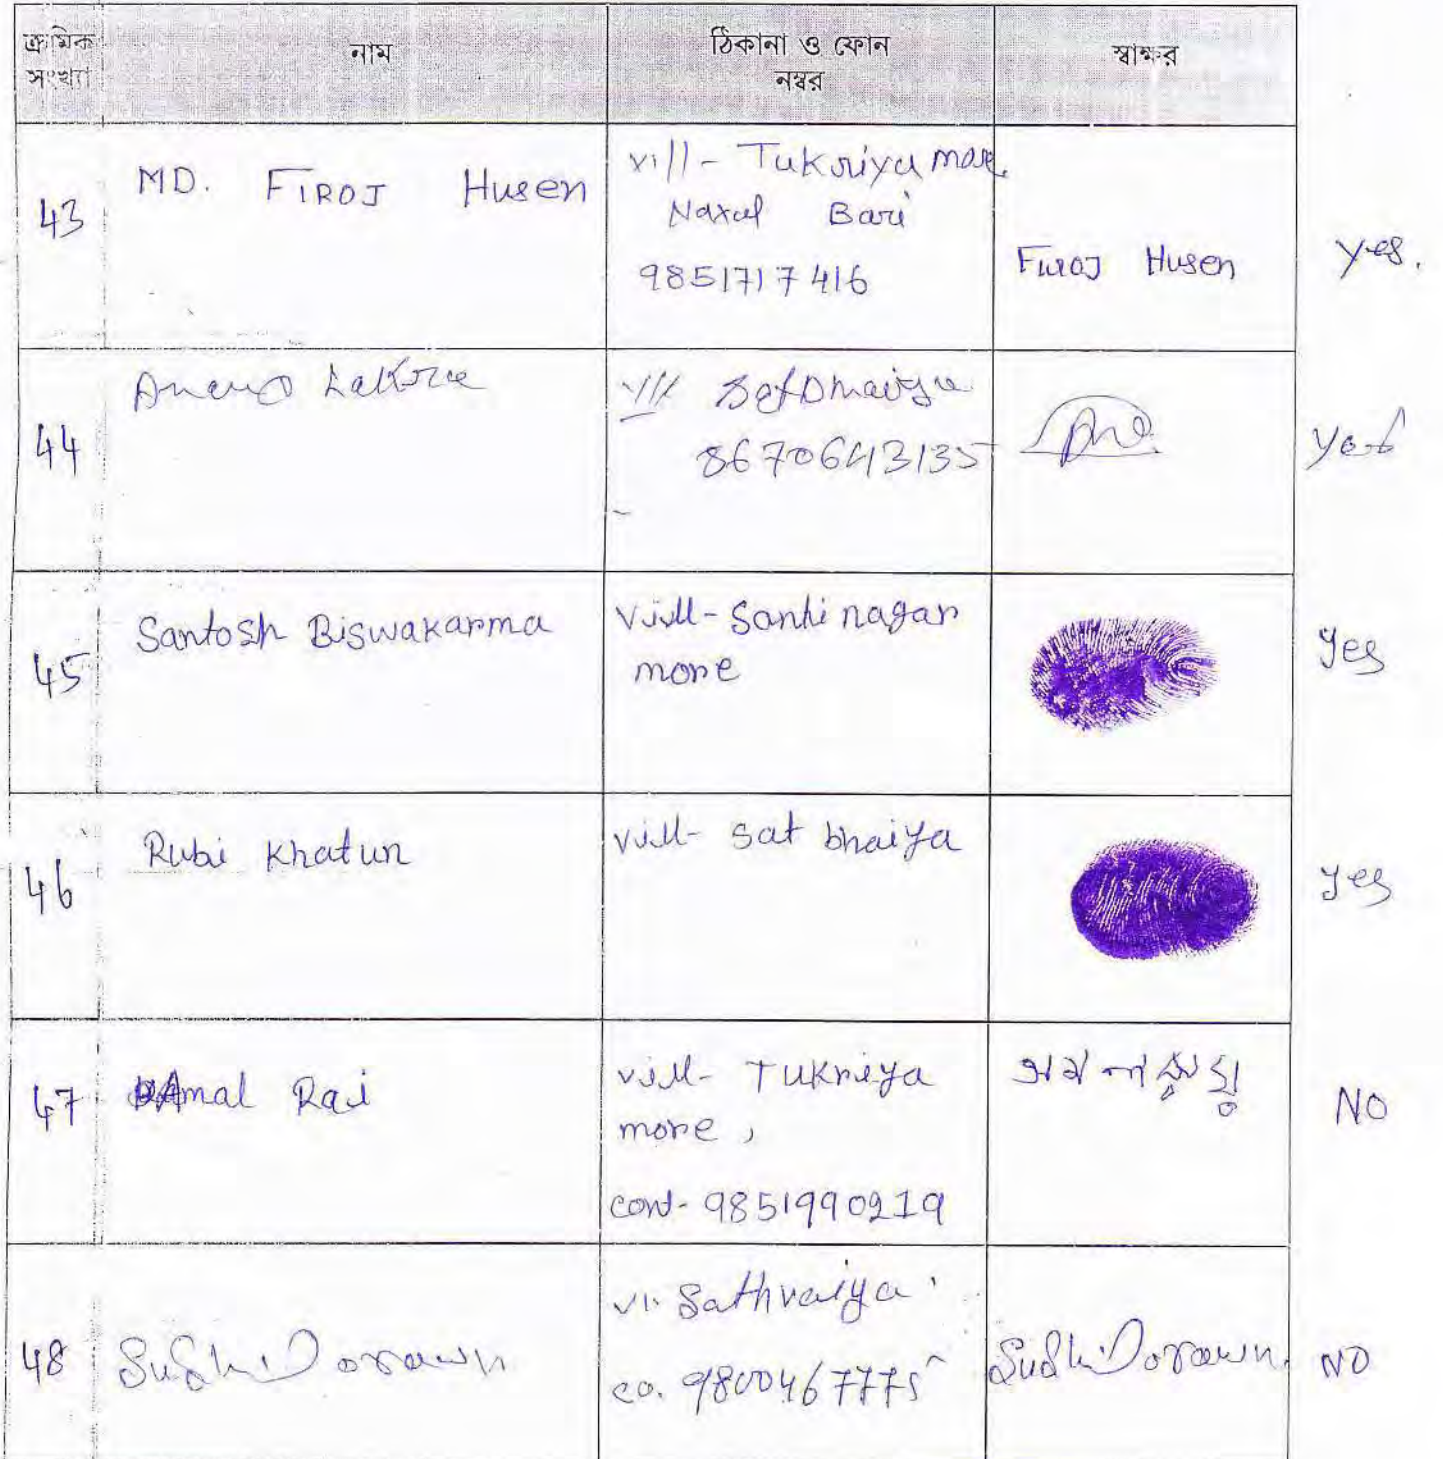 ক্রমিক সংখ্যা নাম ঠিকানা ও ফোন নম্বর স্বাক্ষর
43 MD. FIROJ Husen vill- Tukriya more
Naxal Bari
9851717416 Firoj Husen yes.
44 Lakra
8670643135 yes
45 Santosh Biswakarma vill- Santi nagar
more yes
46 Rubi Khatun vill- Sat bhaiya yes
47 Amal Rai vill- Tukriya
more,
cont- 9851990219 NO
48 vi. Sathvaiya
co. 9800467775 NO